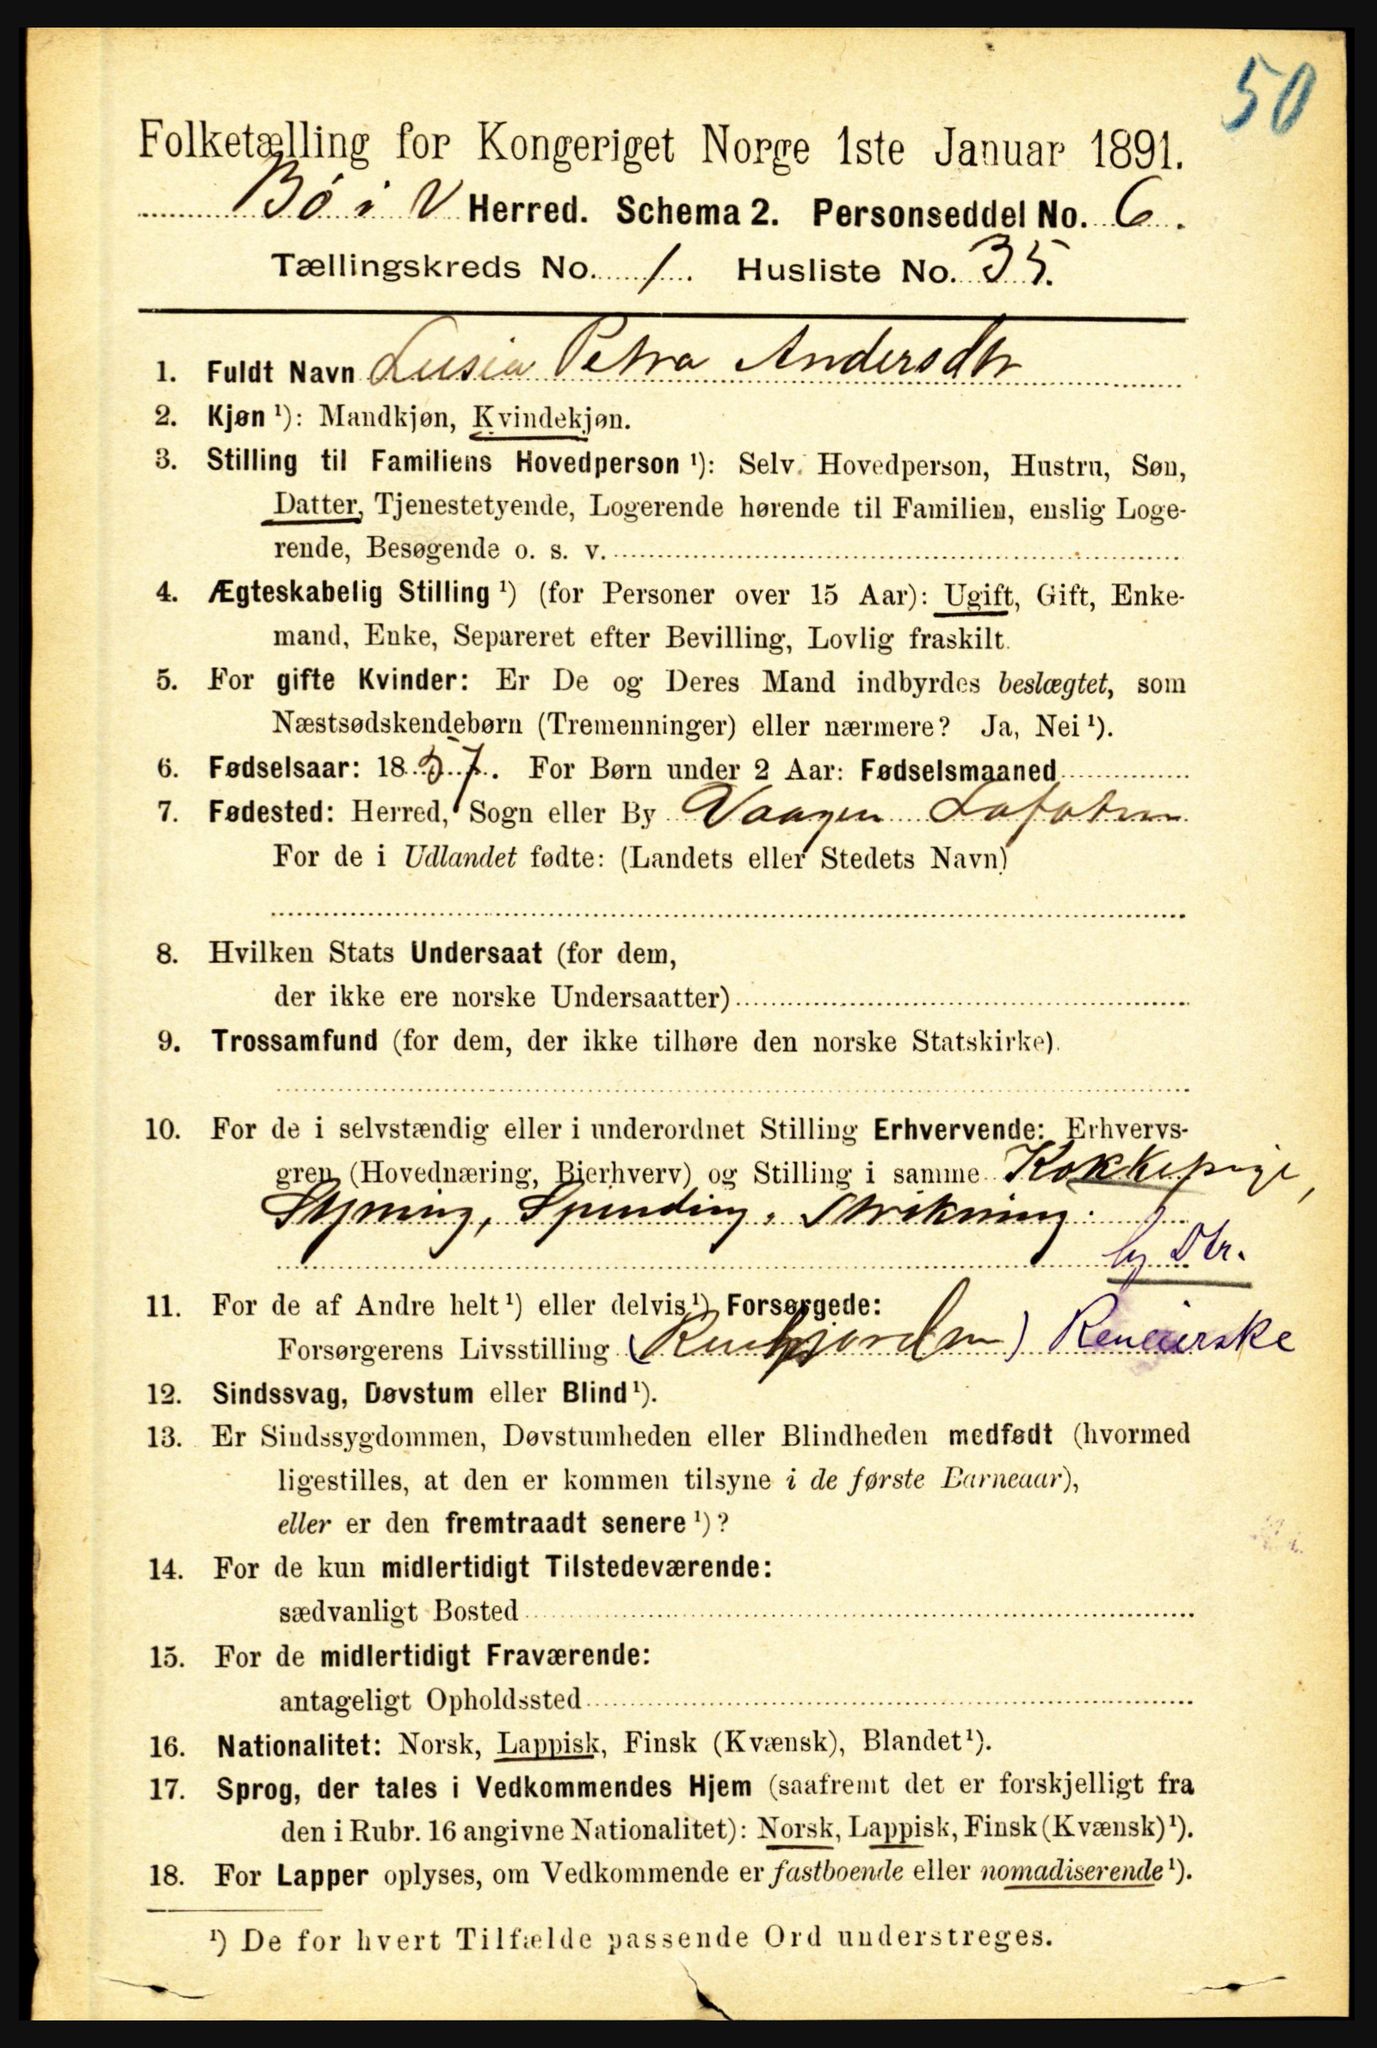 50
Folketælling for Kongeriget Norge 1ste Januar 1891.
Bö i V Herred. Schema 2. Personseddel No. 6.
Tællingskreds No. 1. Husliste No. 35.
1. Fuldt Navn Lusia Petra Andersdtr
2. Kjøn ¹): Mandkjøn, Kvindekjøn.
3. Stilling til Familiens Hovedperson ¹): Selv Hovedperson, Hustru, Søn,
Datter, Tjenestetyende, Logerende hørende til Familien, enslig Loge-
rende, Besøgende o. s. v.
4. Ægteskabelig Stilling ¹) (for Personer over 15 Aar): Ugift, Gift, Enke-
mand, Enke, Separeret efter Bevilling, Lovlig fraskilt.
5. For gifte Kvinder: Er De og Deres Mand indbyrdes beslægtet, som
Næstsødskendebørn (Tremenninger) eller nærmere? Ja, Nei ¹).
6. Fødselsaar: 1857. For Børn under 2 Aar: Fødselsmaaned
7. Fødested: Herred, Sogn eller By Vaagen Lofoten
For de i Udlandet fødte: (Landets eller Stedets Navn)
8. Hvilken Stats Undersaat (for dem,
der ikke ere norske Undersaatter)
9. Trossamfund (for dem, der ikke tilhøre den norske Statskirke).
10. For de i selvstændig eller i underordnet Stilling Erhvervende: Erhvervs-
gren (Hovednæring, Bierhverv) og Stilling i samme Kokkepige,
Styning, Spinding, Strikning.
hj Dtr.
11. For de af Andre helt ¹) eller delvis ¹) Forsørgede:
Forsørgerens Livsstilling (Renhjorden) Reneierske
12. Sindssvag, Døvstum eller Blind ¹).
13. Er Sindssygdommen, Døvstumheden eller Blindheden medfødt (hvormed
ligestilles, at den er kommen tilsyne i de første Barneaar),
eller er den fremtraadt senere ¹)?
14. For de kun midlertidigt Tilstedeværende:
sædvanligt Bosted
15. For de midlertidigt Fraværende:
antageligt Opholdssted
16. Nationalitet: Norsk, Lappisk, Finsk (Kvænsk), Blandet ¹).
17. Sprog, der tales i Vedkommendes Hjem (saafremt det er forskjelligt fra
den i Rubr. 16 angivne Nationalitet): Norsk, Lappisk, Finsk (Kvænsk) ¹).
18. For Lapper oplyses, om Vedkommende er fastboende eller nomadiserende ¹).
¹) De for hvert Tilfælde passende Ord understreges.